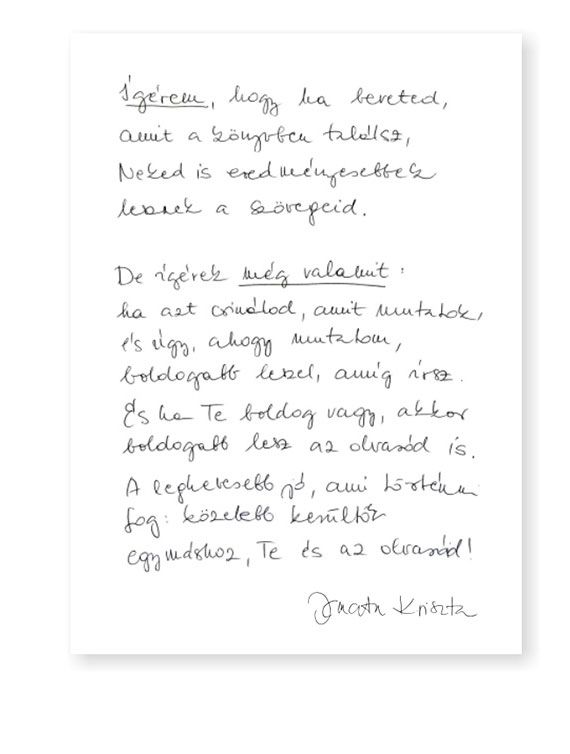 Ígérem, hogy ha beveted,
amit a könyvben találsz,
Neked is eredményesebbek
lesznek a szövegeid.
De ígérek még valamit:
ha azt csinálod, amit mutatok,
és úgy, ahogy mutatom,
boldogabb leszel, amíg írsz.
És ha Te boldog vagy, akkor
boldogabb lesz az olvasód is.
A leghelyesebb jó, ami történni
fog: közelebb kerültök
egymáshoz, Te és az olvasód!
Kriszta